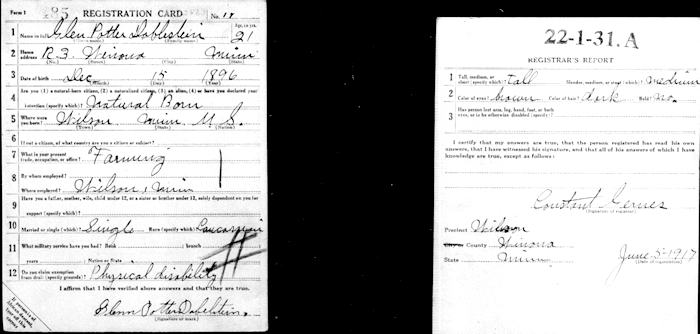 Form 1
REGISTRATION CARD
No. 18
1 Name in full Glen Potter Doblestein Age, in yrs. 21
(Given name) (Family name)
2 Home address R. 3. Winona Minn
(No.) (Street) (City) (State)
3 Date of birth Dec 15 1896
(Month) (Day) (Year)
4 Are you (1) a natural-born citizen, (2) a naturalized citizen, (3) an alien, (4) or have you declared your intention (specify which)? Natural Born
5 Where were you born? Wilson Minn U.S.
(Town) (State) (Nation)
6 If not a citizen, of what country are you a citizen or subject?
7 What is your present trade, occupation, or office? Farming
8 By whom employed?
Where employed? Wilson, Minn
9 Have you a father, mother, wife, child under 12, or a sister or brother under 12, solely dependent on you for support (specify which)?
10 Married or single (which)? Single Race (specify which)? Caucasian
11 What military service have you had? Rank branch
years Nation or State
12 Do you claim exemption from draft (specify grounds)? Physical disability
I affirm that I have verified above answers and that they are true.
Glenn Potter Dobelstein
(Signature or mark)
22-1-31. A
REGISTRAR'S REPORT
1 Tall, medium, or short (specify which)? tall Slender, medium, or stout (which)? medium
2 Color of eyes? brown Color of hair? dark Bald? no.
3 Has person lost arm, leg, hand, foot, or both eyes, or is he otherwise disabled (specify)?
I certify that my answers are true, that the person registered has read his own answers, that I have witnessed his signature, and that all of his answers of which I have knowledge are true, except as follows:
Constant Gernes
(Signature of registrar)
Precinct Wilson
City or County Winona
State Minn June-5-1917
(Date of registration)